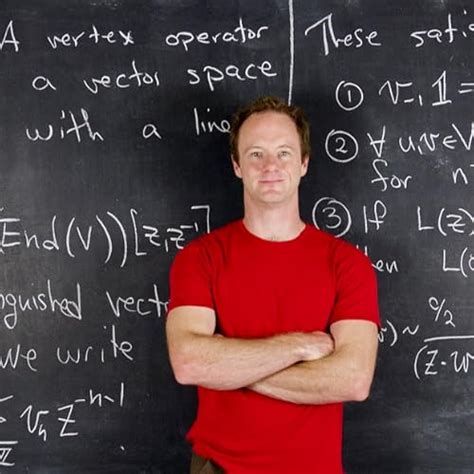 A vertex operator
a vector space
with a line
End(V))[z,z⁻¹]
we write
vₙ z⁻ⁿ⁻¹
These sati
① v₋₁𝟙 =
② ∀ u,v ∈ V
for n
③ If L(z)
then L(z)
c/2
(z-w